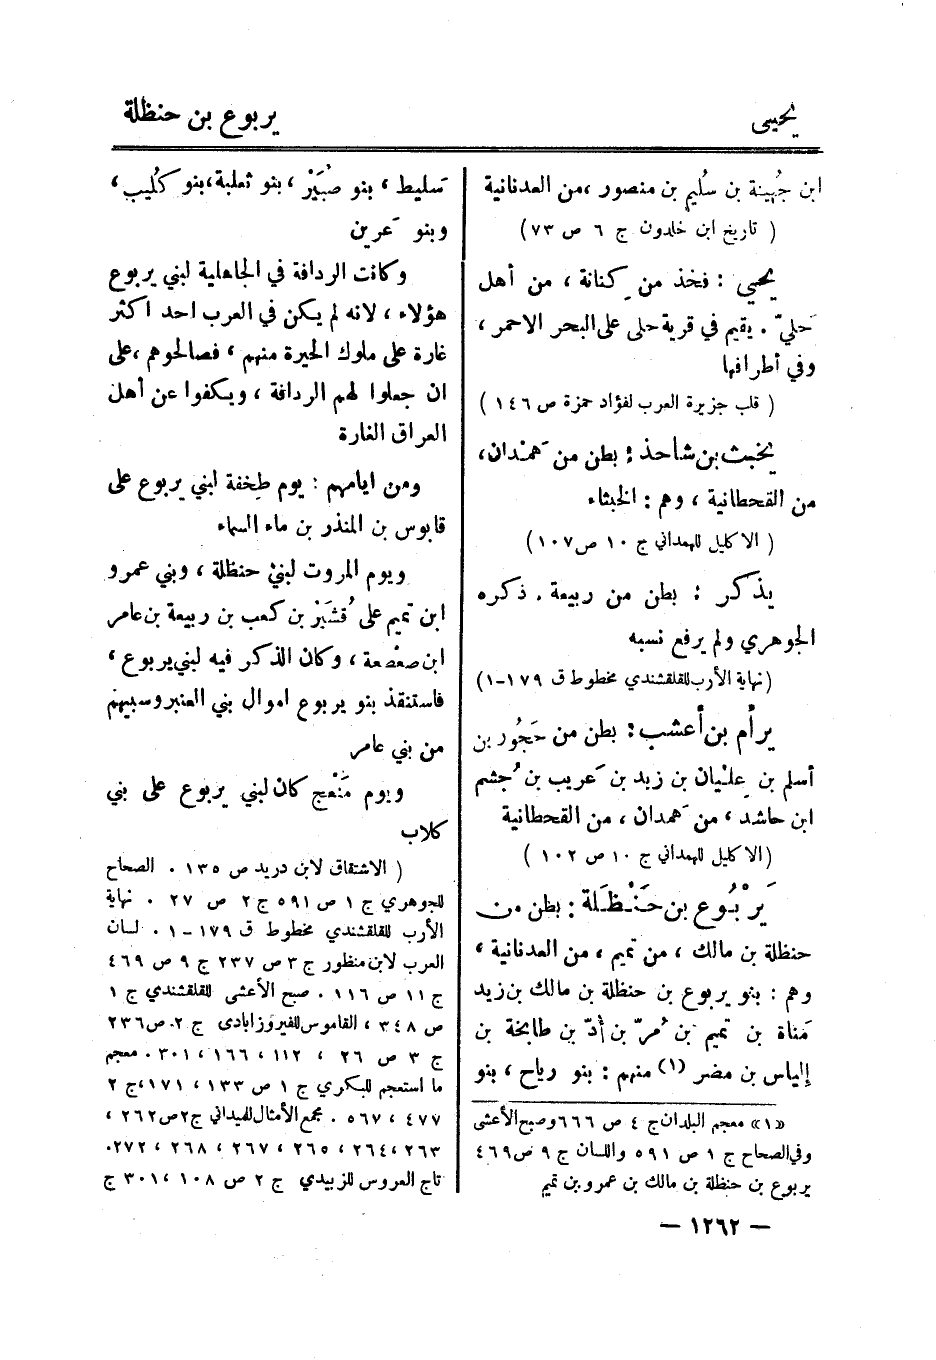 يحيى
يربوع بن حنظلة
ابن جُهينة بن سُليم بن منصور ، من العدنانية
( تاريخ ابن خلدون ج ٦ ص ٧٣ )
يحيى : فخذ من كِنانة ، من أهل
حَلي . يقيم في قرية حلى على البحر الاحمر ،
وفي أطرافها
( قلب جزيرة العرب لفؤاد حمزة ص ١٤٦ )
يخبث بن شاحذ : بطن من هَمْدان ،
من القحطانية ، وهم : الخبثاء
( الاكليل للهمداني ج ١٠ ص ١٠٧ )
يذكر : بطن من ربيعة . ذكره
الجوهري ولم يرفع نسبه
( نهاية الأرب للقلقشندي مخطوط ق ١٧٩-١ )
يرأم بن أعشب : بطن من حَجُور بن
أسلم بن عِلْيان بن زيد بن عَريب بن جُشم
ابن حاشد ، من هَمدان ، من القحطانية
( الاكليل للهمداني ج ١٠ ص ١٠٢ )
يَرْبُوع بن حَنْظَلة : بطن من
حنظلة بن مالك ، من تميم ، من العدنانية ،
وهم : بنو يربوع بن حنظلة بن مالك بن زيد
مَناة بن تميم بن مُرّ بن أُدّ بن طابخة بن
إلياس بن مضر (١) منهم : بنو رياح ، بنو
«١» معجم البلدان ج ٤ ص ٦٦٦ وصبح الأعشى
وفي الصحاح ج ١ ص ٥٩١ واللسان ج ٩ ص ٤٦٩
يربوع بن حنظلة بن مالك بن عمرو بن تميم
سَليط ، بنو صُبَيْر ، بنو ثعلبة ، بنو كُليب ،
وبنو عَرين
وكانت الردافة في الجاهلية لبني يربوع
هؤلاء ، لانه لم يكن في العرب احد اكثر
غارة على ملوك الحيرة منهم ، فصالحوهم ، على
ان جعلوا لهم الردافة ، ويكفوا عن أهل
العراق الغارة
ومن ايامهم : يوم طِخفة لبني يربوع على
قابوس بن المنذر بن ماء السماء
ويوم المروت لبني حنظلة ، وبني عمرو
ابن تميم على قُشَيْر بن كعب بن ربيعة بن عامر
ابن صعْصعة ، وكان الذكر فيه لبني يربوع ،
فاستنقذ بنو يربوع اموال بني العنبر وسبيهم
من بني عامر
ويوم مَنْعج كان لبني يربوع على بني
كلاب
( الاشتقاق لابن دريد ص ١٣٥ . الصحاح
للجوهري ج ١ ص ٥٩١ ج ٢ ص ٢٧ . نهاية
الأرب للقلقشندي مخطوط ق ١٧٩-١ . لسان
العرب لابن منظور ج ٣ ص ٢٣٧ ج ٩ ص ٤٦٩
ج ١١ ص ١١٦ . صبح الأعشى للقلقشندي ج ١
ص ٣٤٨ ، القاموس للفيروزابادى ج ٢ . ص ٢٣٦
ج ٣ ص ٢٦ ، ١١٢ ، ١٦٦ ، ٣٠١ . معجم
ما استعجم للبكري ج ١ ص ١٣٣ ، ١٧١ ، ج ٢
٤٧٧ ، ٥٦٧ . مجمع الأمثال للميداني ج ٢ ص ٢٦٢ ،
٢٦٣ ، ٢٦٤ ، ٢٦٥ ، ٢٦٧ ، ٢٦٨ ، ٢٧٢ .
تاج العروس للزبيدي ج ٢ ص ١٠٨ ، ٣٠١ ج
— ١٢٦٢ —